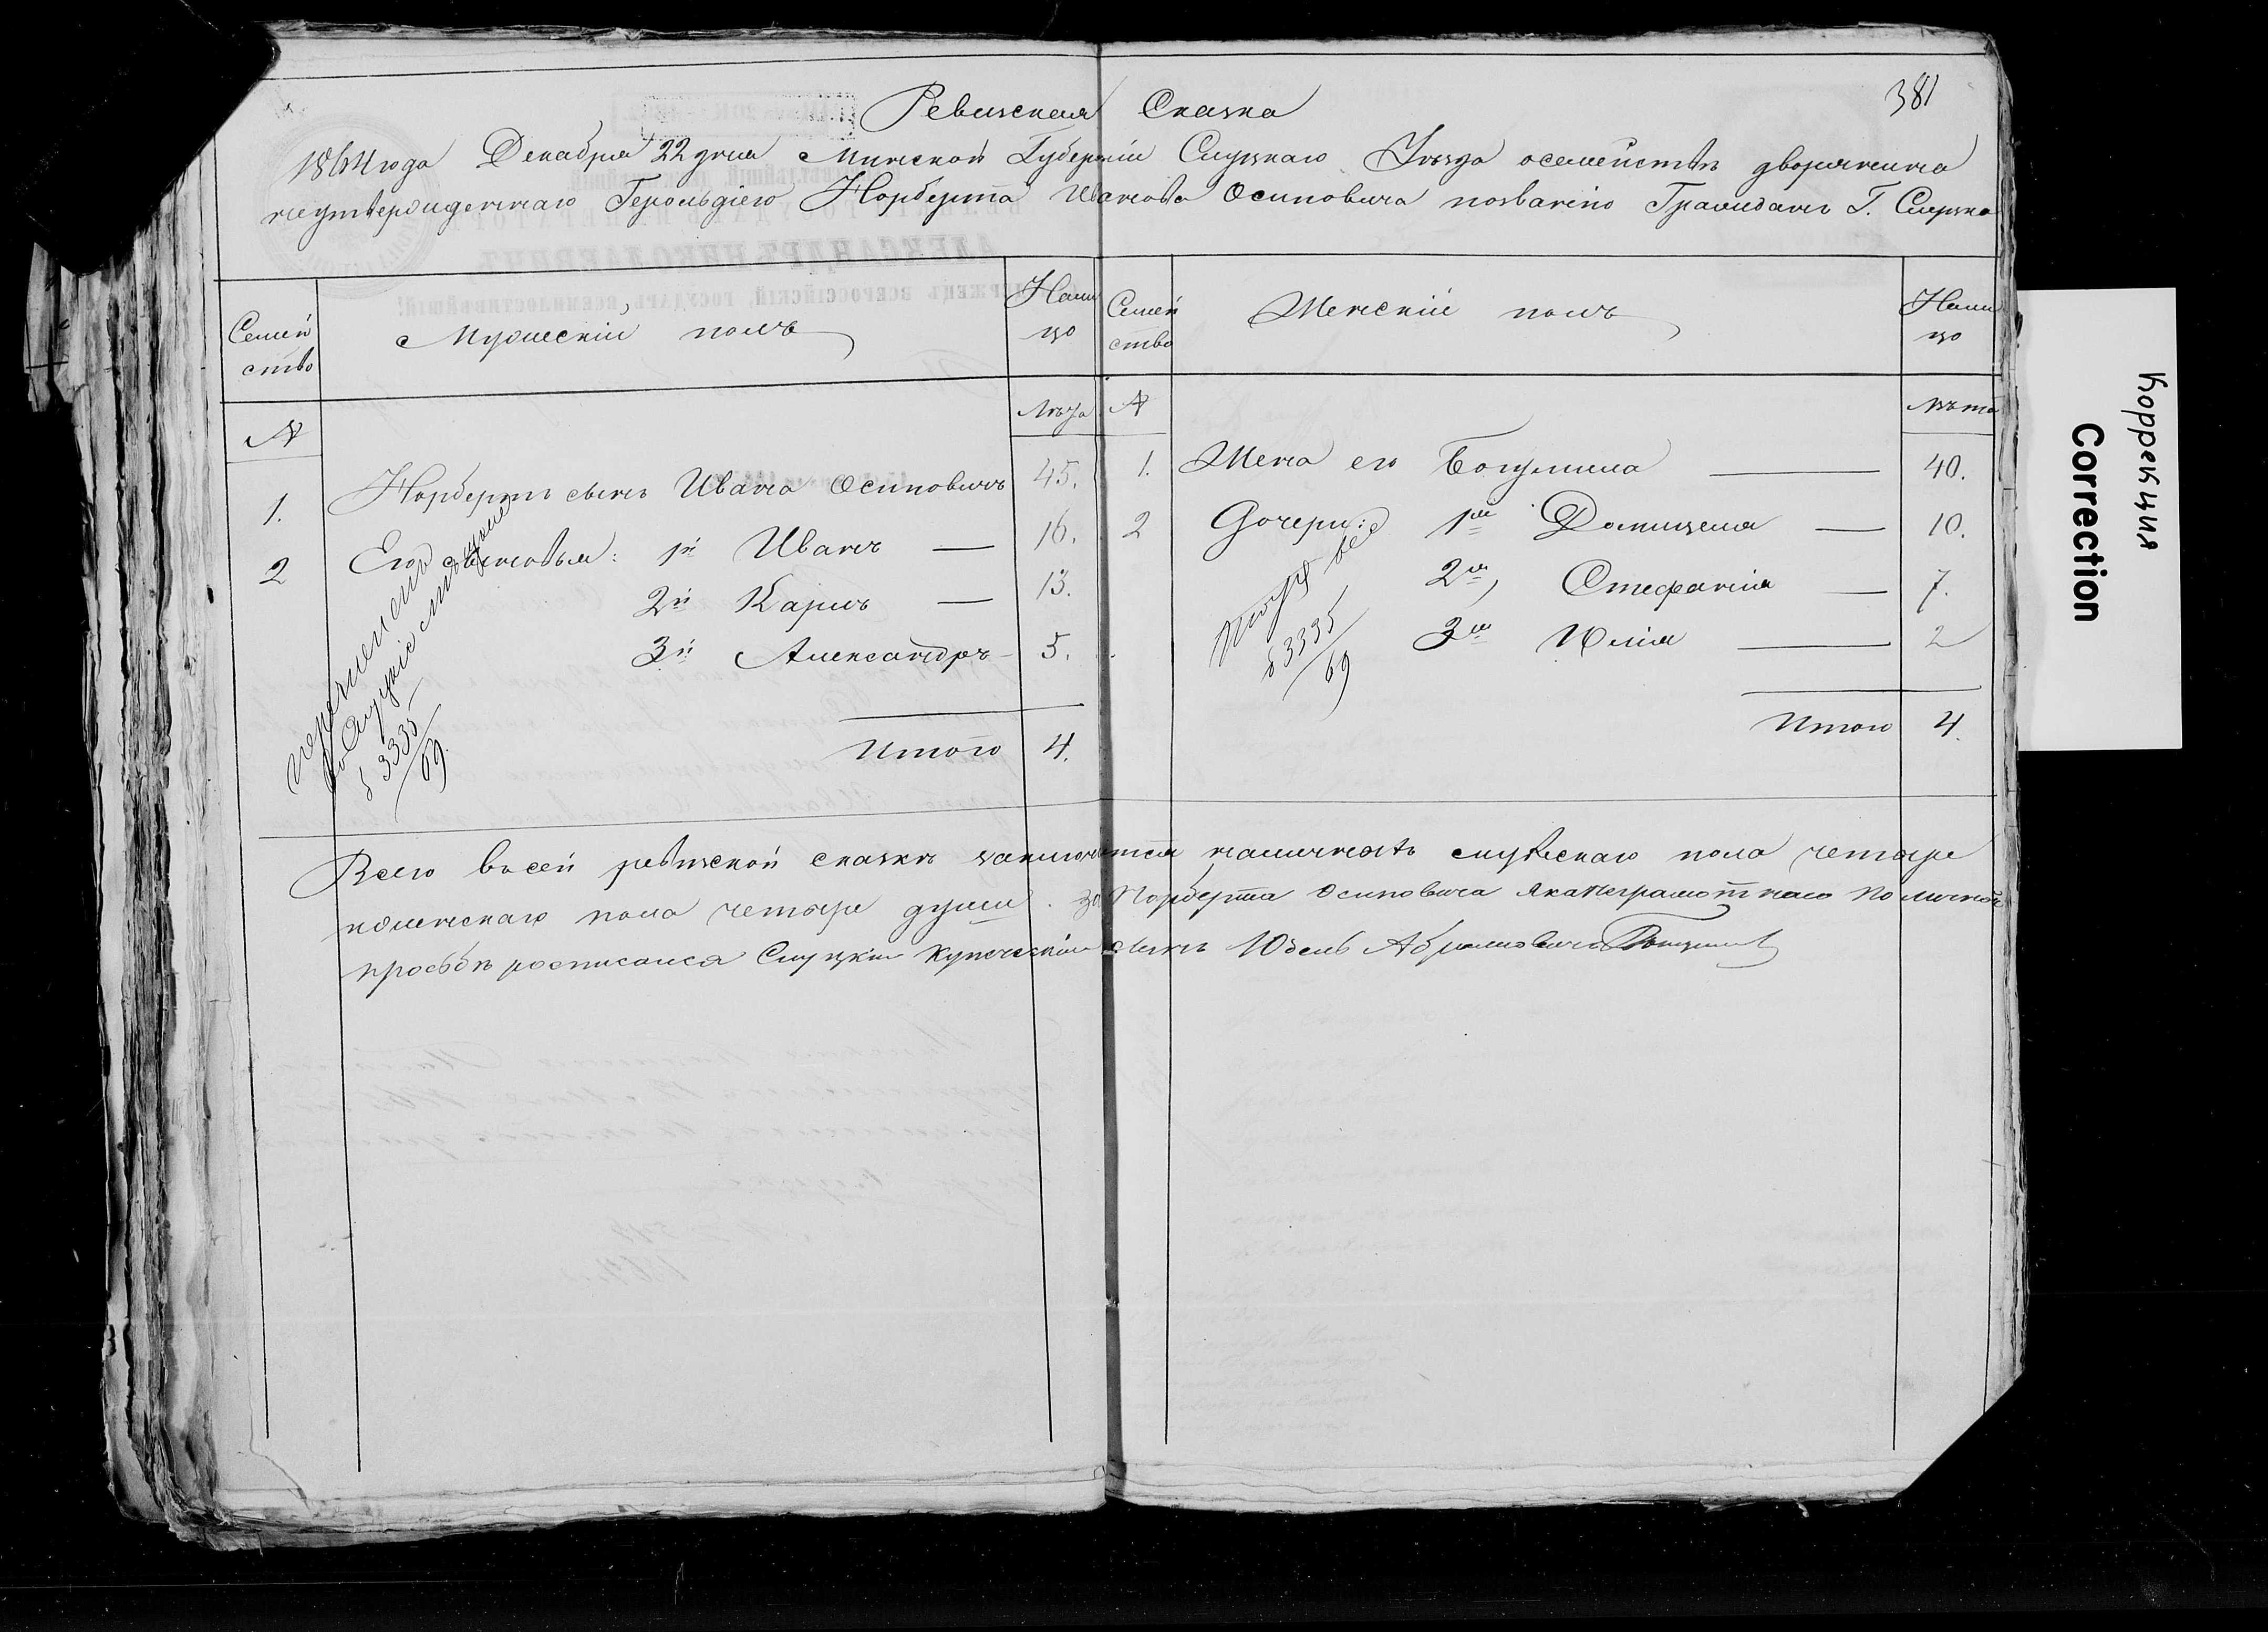 381
Ревизская Сказка
1864 года Декабря 22 дня Минской Губерніи Слуцкаго Уѣзда осемействѣ дворянина
неутвержденнаго Герольдіею Норберта Иванова Осиповича позванію Гражданъ Г. Слуцка
Семей
ство
Мужескій полъ
На ли
цо
Семей
ство
Женскій полъ
На ли
цо
№
Лѣта
№
Лѣта
1. Норбертъ сынъ Ивана Осиповичъ 45.
2 Его сыновья: 1й Иванъ — 16.
2й Карлъ — 13.
3й Александръ 5.
Итого 4.
перечисленъ
въ Слуцкіе мѣщане
3335
69
1. Жена его Богумила — 40.
2 Дочери: 1я Домицеля — 10.
2я, Стефанія — 7.
3я Юлія — 2
Итого 4.
3335
69
Всего въ сей ревизской сказкѣ заключается наличность мужескаго пола четыре
иженскаго пола четыре души. за Норберта Осиповича яканеграмотнаго по личной
просьбѣ росписался Слуцкій Купеческій сынъ Юдель Абрамовичъ
Коррекция
Correction